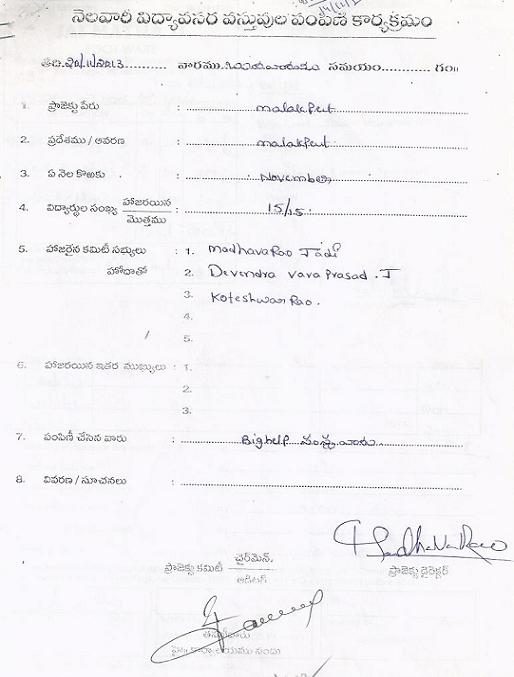 నెలవారీ విద్యావసర వస్తువుల పంపిణీ కార్యక్రమం
తేది.20/11/2013 వారము.బుధవారము సమయం............ గం॥
1. ప్రాజెక్టు పేరు : malakpeut
2. ప్రదేశము / ఆవరణ : malakpeut
3. ఏ నెల కొఱకు : November
4. విద్యార్థుల సంఖ్య హాజరయిన / మొత్తము : 15/15
5. హాజరైన కమిటీ సభ్యులు : 1. madhava Rao Jadi
హోదాతో 2. Devendra vara Prasad . J
3. Koteshwar Rao.
4.
5.
6. హాజరయిన ఇతర ముఖ్యులు : 1.
2.
3.
7. పంపిణీ చేసిన వారు : Bighelp సంస్థ వారు
8. వివరణ / సూచనలు :
MadhavaRao
ప్రాజెక్టు కమిటీ ఛైర్మెన్. ప్రాజెక్టు డైరెక్టర్
ఆడిటర్